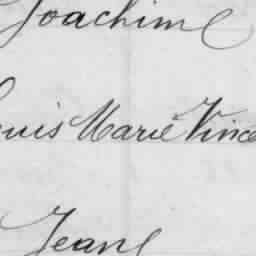 Joachim
ouis Marie Vince
Jean